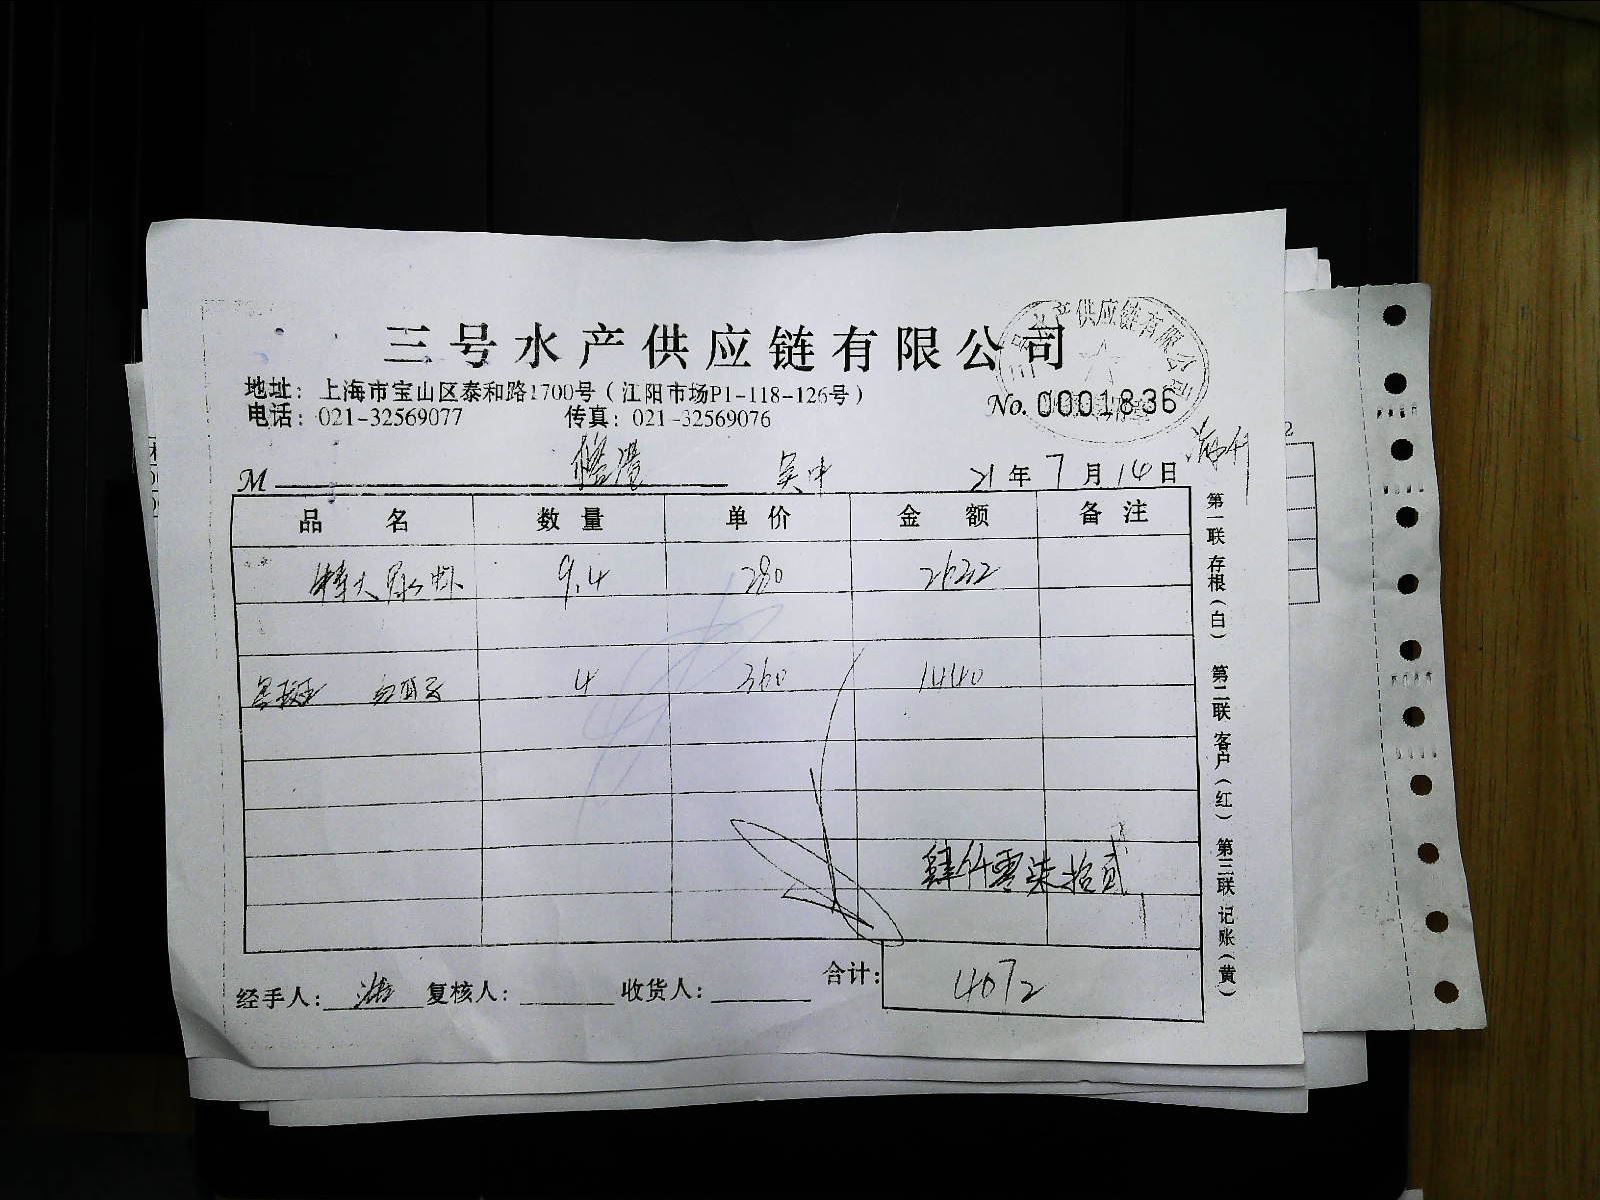 三号水产供应链有限公司
地址：上海市宝山区泰和路1700号（江阳市场P1-118-126号）
电话：021-32569077 传真：021-32569076
No. 0001836
三号水产供应链有限公司
M 吴中 21年7月14日
品名 数量 单价 金额 备注
特大 虾 9.4 280 2632
4 360 1440
肆仟零柒拾贰
合计：4072
经手人： 复核人： 收货人：
第一联存根（白） 第二联客户（红） 第三联记账（黄）